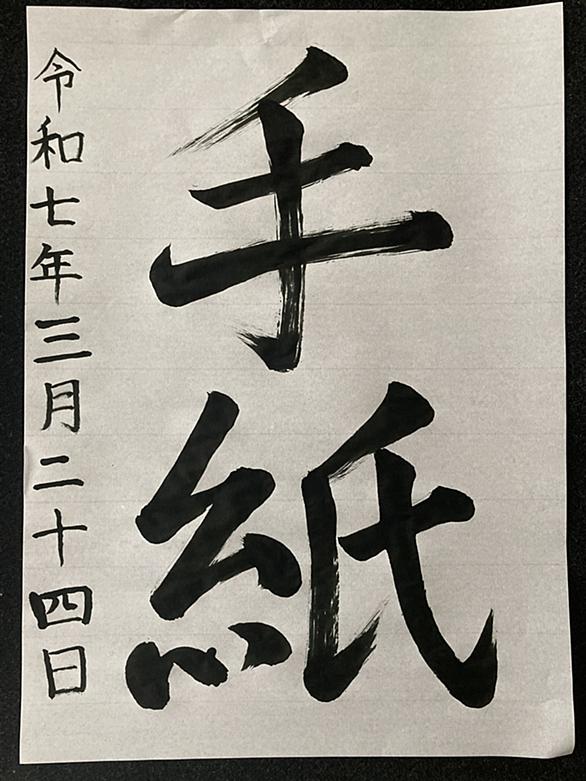 手紙
令和七年三月二十四日